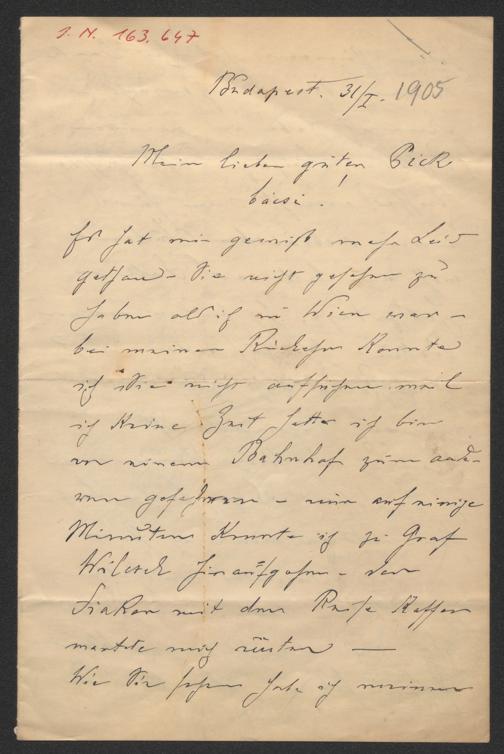 J. N. 163.647
Budapest. 31/I. 1905
Mein lieber guter Pick
bácsi!
Es hat mir gewiß mehr Leid
gethan - Sie nicht gesehen zu
haben als ich in Wien war -
bei meiner Rückkehr konnte
ich Sie nicht aufsuchen weil
ich keine Zeit hatte ich bin
von einem Bahnhof zum ande-
ren gefahren - nur auf einige
Minuten konnte ich zu Graf
Wilczek hinaufgehen - der
Fiaker mit dem Reise Koffer
wartete mich unten —
Wie Sie sehen habe ich meinen